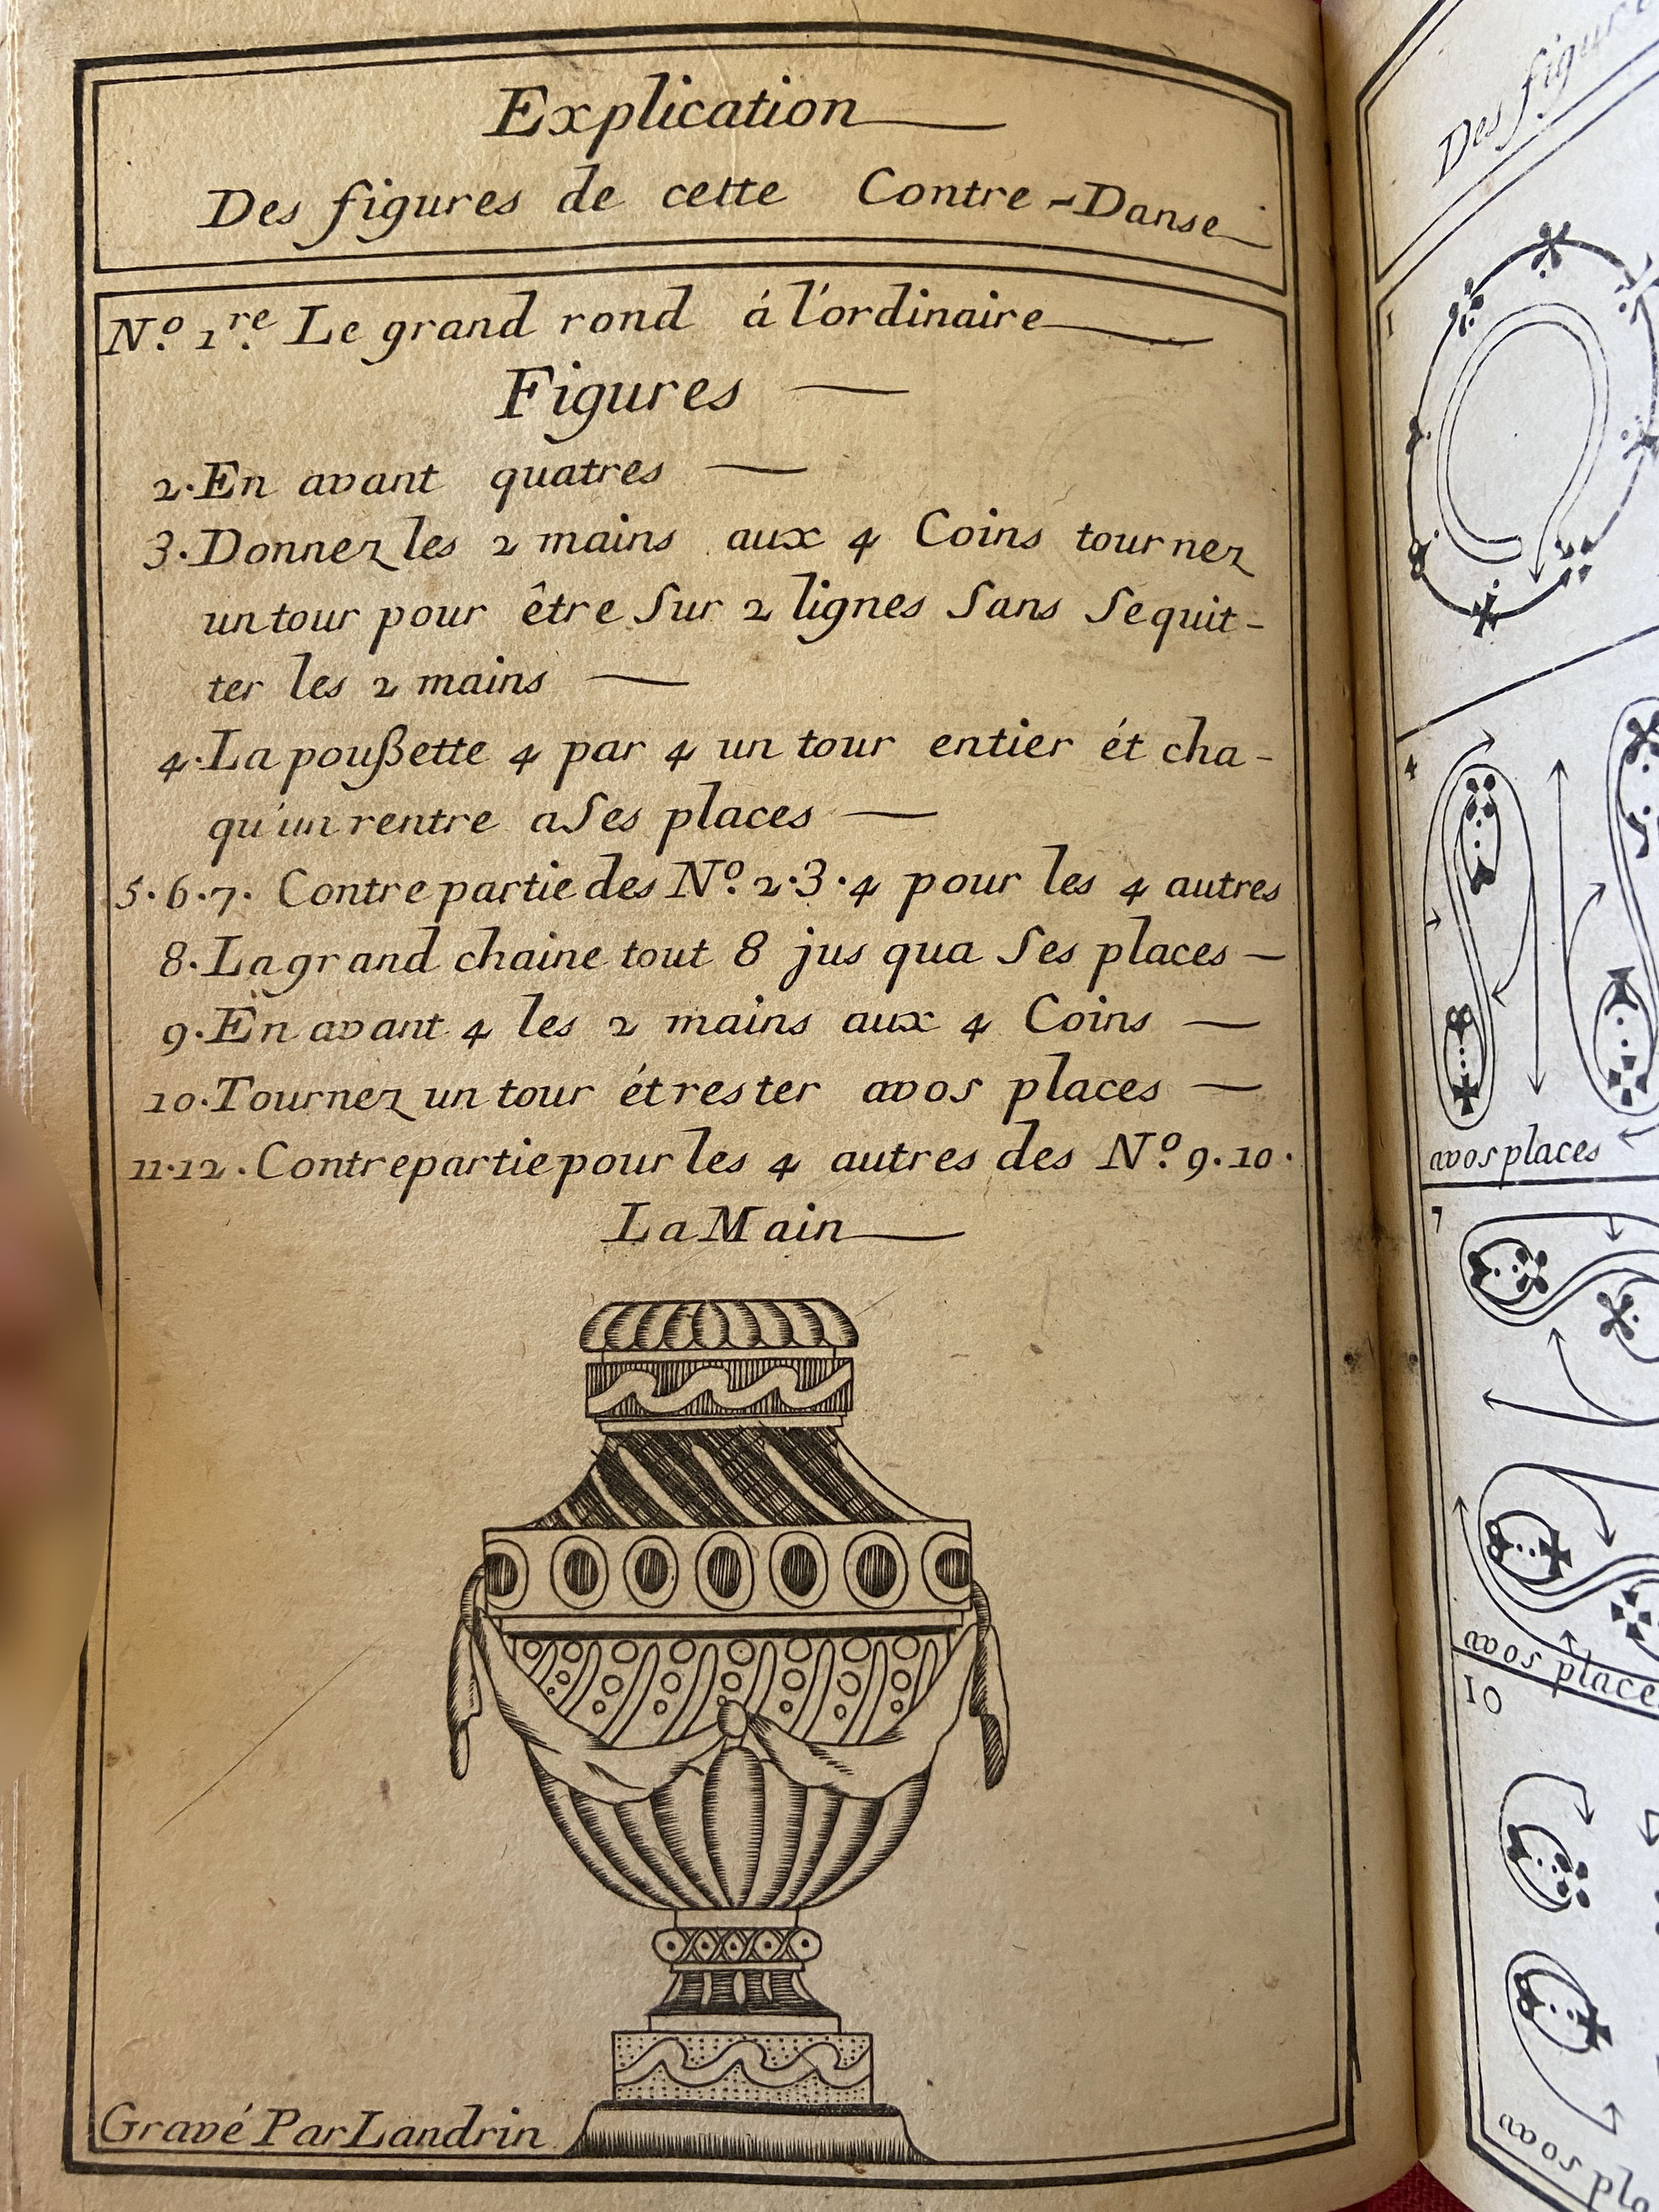 Explication
Des figures de cette Contre-Danse
N.º 1.re Le grand rond á l'ordinaire
Figures
2. En avant quatres
3. Donnez les 2 mains aux 4 Coins tournez
un tour pour être sur 2 lignes sans se quit-
ter les 2 mains
4. La poußette 4 par 4 un tour entier ét cha-
qu'un rentre a ses places
5. 6. 7. Contre partie des N.º 2. 3. 4 pour les 4 autres
8. La grand chaine tout 8 jus qua ses places
9. En avant 4 les 2 mains aux 4 Coins
10. Tournez un tour ét rester avos places
11. 12. Contrepartie pour les 4 autres des N.º 9. 10.
La Main
Gravé Par Landrin
Des figure
1
4
avos places
7
avos place
10
avos pl